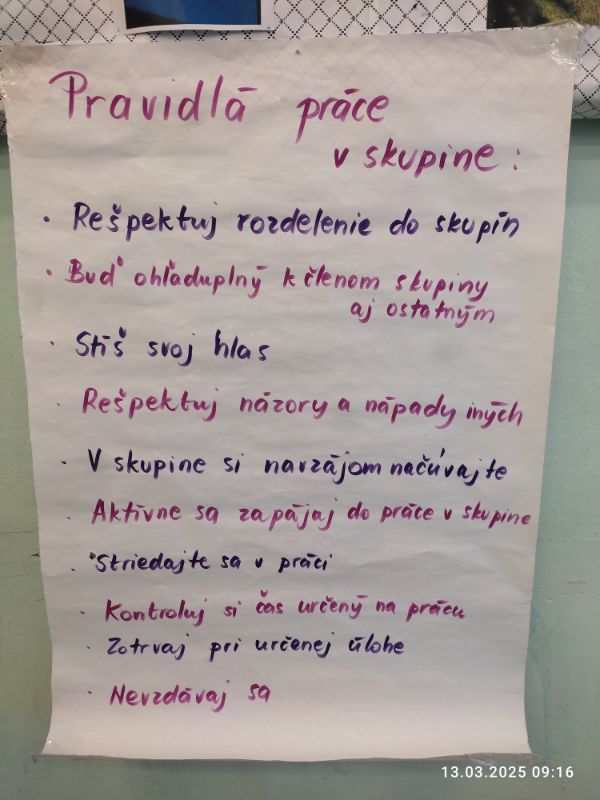 Pravidlá práce
v skupine:
• Rešpektuj rozdelenie do skupín
• Buď ohľaduplný k členom skupiny
aj ostatným
• Stíš svoj hlas
• Rešpektuj názory a nápady iných
• V skupine si navzájom načúvajte
• Aktívne sa zapájaj do práce v skupine
• Striedajte sa v práci
• Kontroluj si čas určený na prácu
• Zotrvaj pri určenej úlohe
• Nevzdávaj sa
13.03.2025 09:16